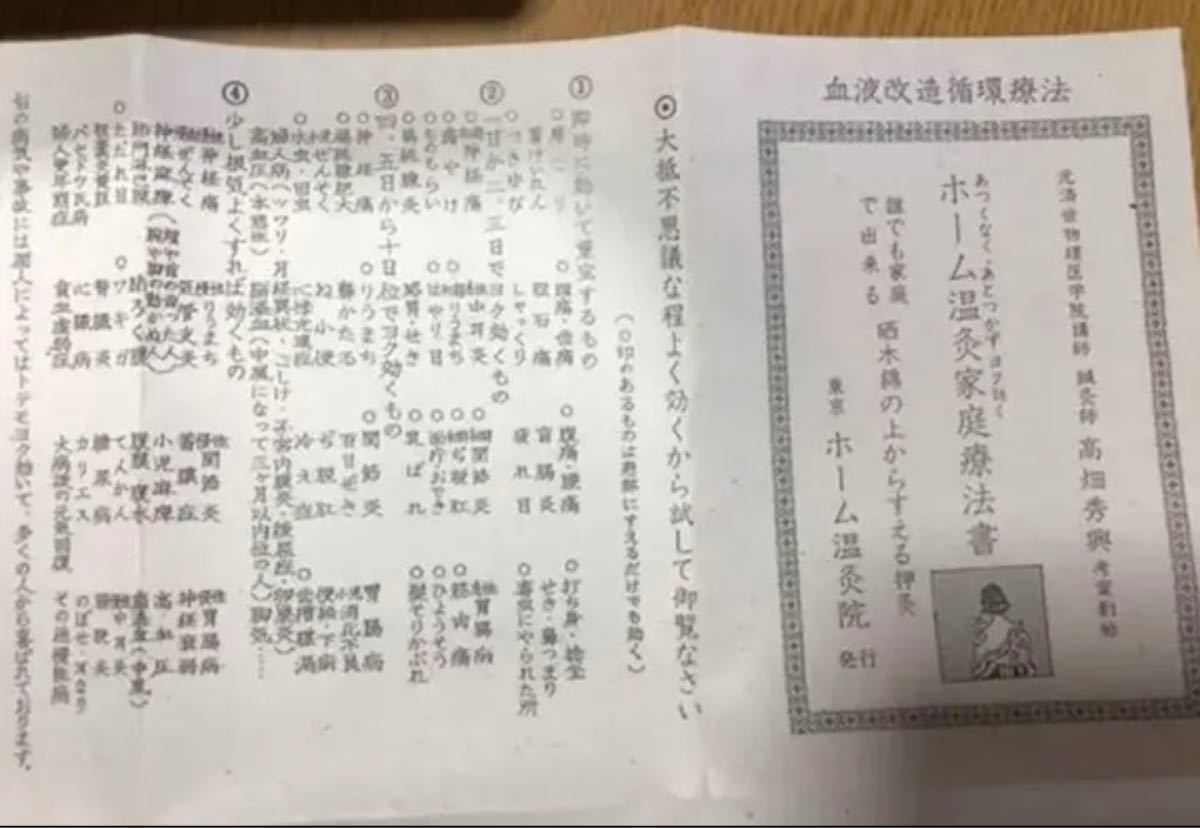 血液改造循環療法
元済世物理医学院講師 鍼灸師 高畑秀興 考案創始
あつくなく、あとつかずヨク効く
ホーム温灸家庭療法書
誰でも家庭で出来る 晒木綿の上からすえる押灸
東京 ホーム温灸院 発行
⦿大抵不思議な程よく効くから試して御覧なさい
(○印のあるものは患部にすえるだけでも効く)
① 即時に効いて重宝するもの
○肩こり ○頭痛・歯痛 ○腹痛・腰痛 ○打ち身・捻挫
胃けいれん 胆石痛 盲腸炎 せき・鼻つまり
○つきゆび しゃっくり 疲れ目 ○毒虫にやられた所
② 一日か二、三日でヨク効くもの
急性神経痛 急性中耳炎 ○急性関節炎 急性胃腸病
○痛やけ ○急性りうまち ○急性ぢ脱肛 ○筋肉痛
○ものもらい ○はやり目 ○面疔・おでき ○ひょうそう
扁桃腺炎 感冒・せき ○乳ばれ ○髭そりかぶれ
③ 四、五日から十日位でヨク効くもの
○神経痛 ○りうまち ○関節炎 胃腸病
○扁桃腺肥大 ○藤かた 百日ぜき 小児消化不良
小児ぜんそく ね小便 ぢ脱肛 便秘・下痢
○水虫・田虫 冷え症 ○歯槽膿漏
婦人病(ツワリ・月経異状・こしけ・子宮内膜炎・卵巣炎)
高血圧(本態性) 脳溢血(中風になって三ヶ月以内位の人)脚気……
④ 少し根気よくすれば効くもの
慢性神経痛 慢性りうまち 慢性関節炎 慢性胃腸病
ぜんそく 気管支炎 蓄膿症 神経衰弱
神経麻痺(腕や脚の動かぬ人) 小児麻痺 高血圧
腹膜・腹水
○ただれ目 ○ワキガ てんかん 慢性中耳炎
腎臓炎 糖尿病 膀胱炎
バセドウ氏病 心臓病 カリエス のぼせ・耳なり
婦人更年期症 貧血虚弱症 大病後の元気回復 その他慢性病
右の病気や事故には個人によってはトテモヨク効いて、多くの人から喜ばれております。